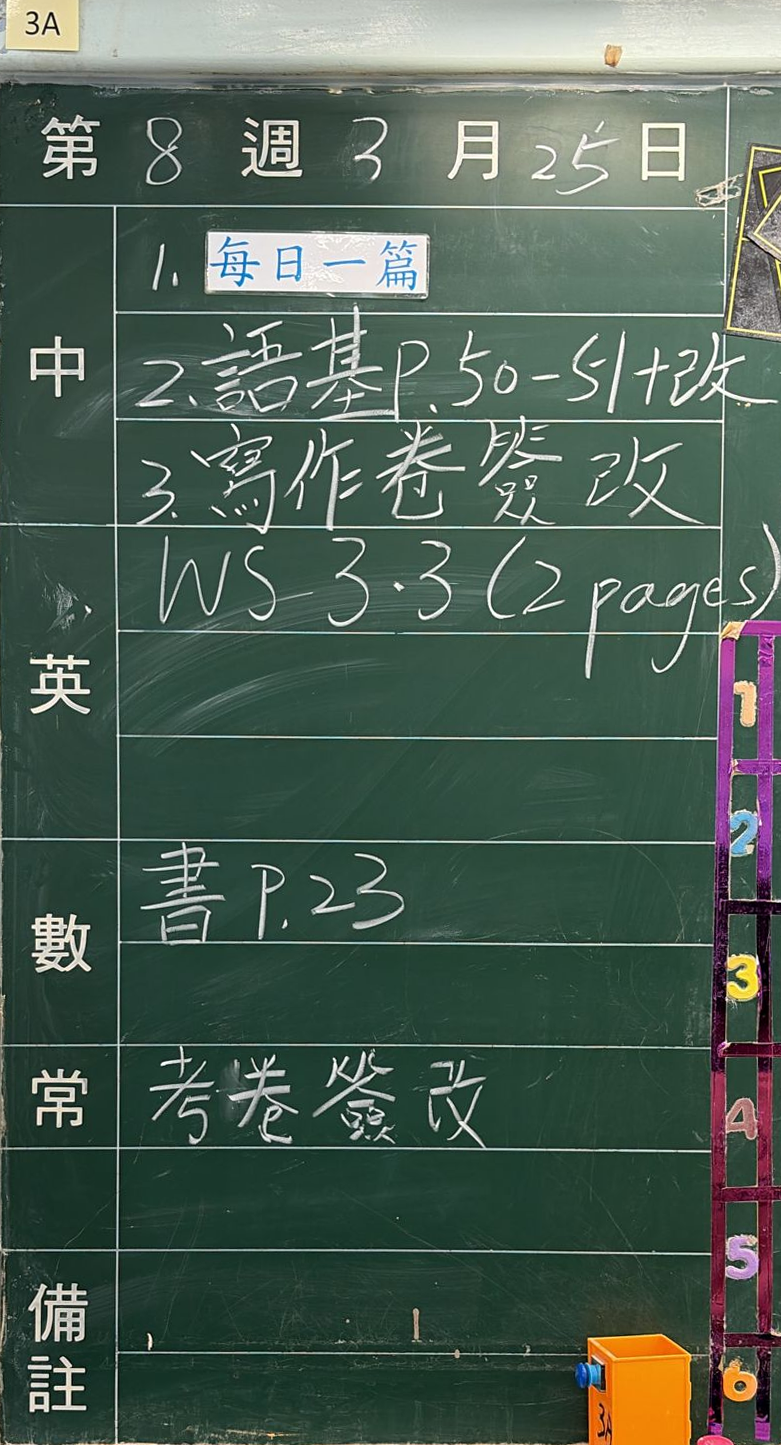 3A
第 8 週 3 月 25 日
中
1. 每日一篇
2. 語基 P.50-51+改
3. 寫作卷簽改
英
WS 3.3 (2 pages)
數
書 P.23
常
考卷簽改
備註
1
2
3
4
5
6
3A